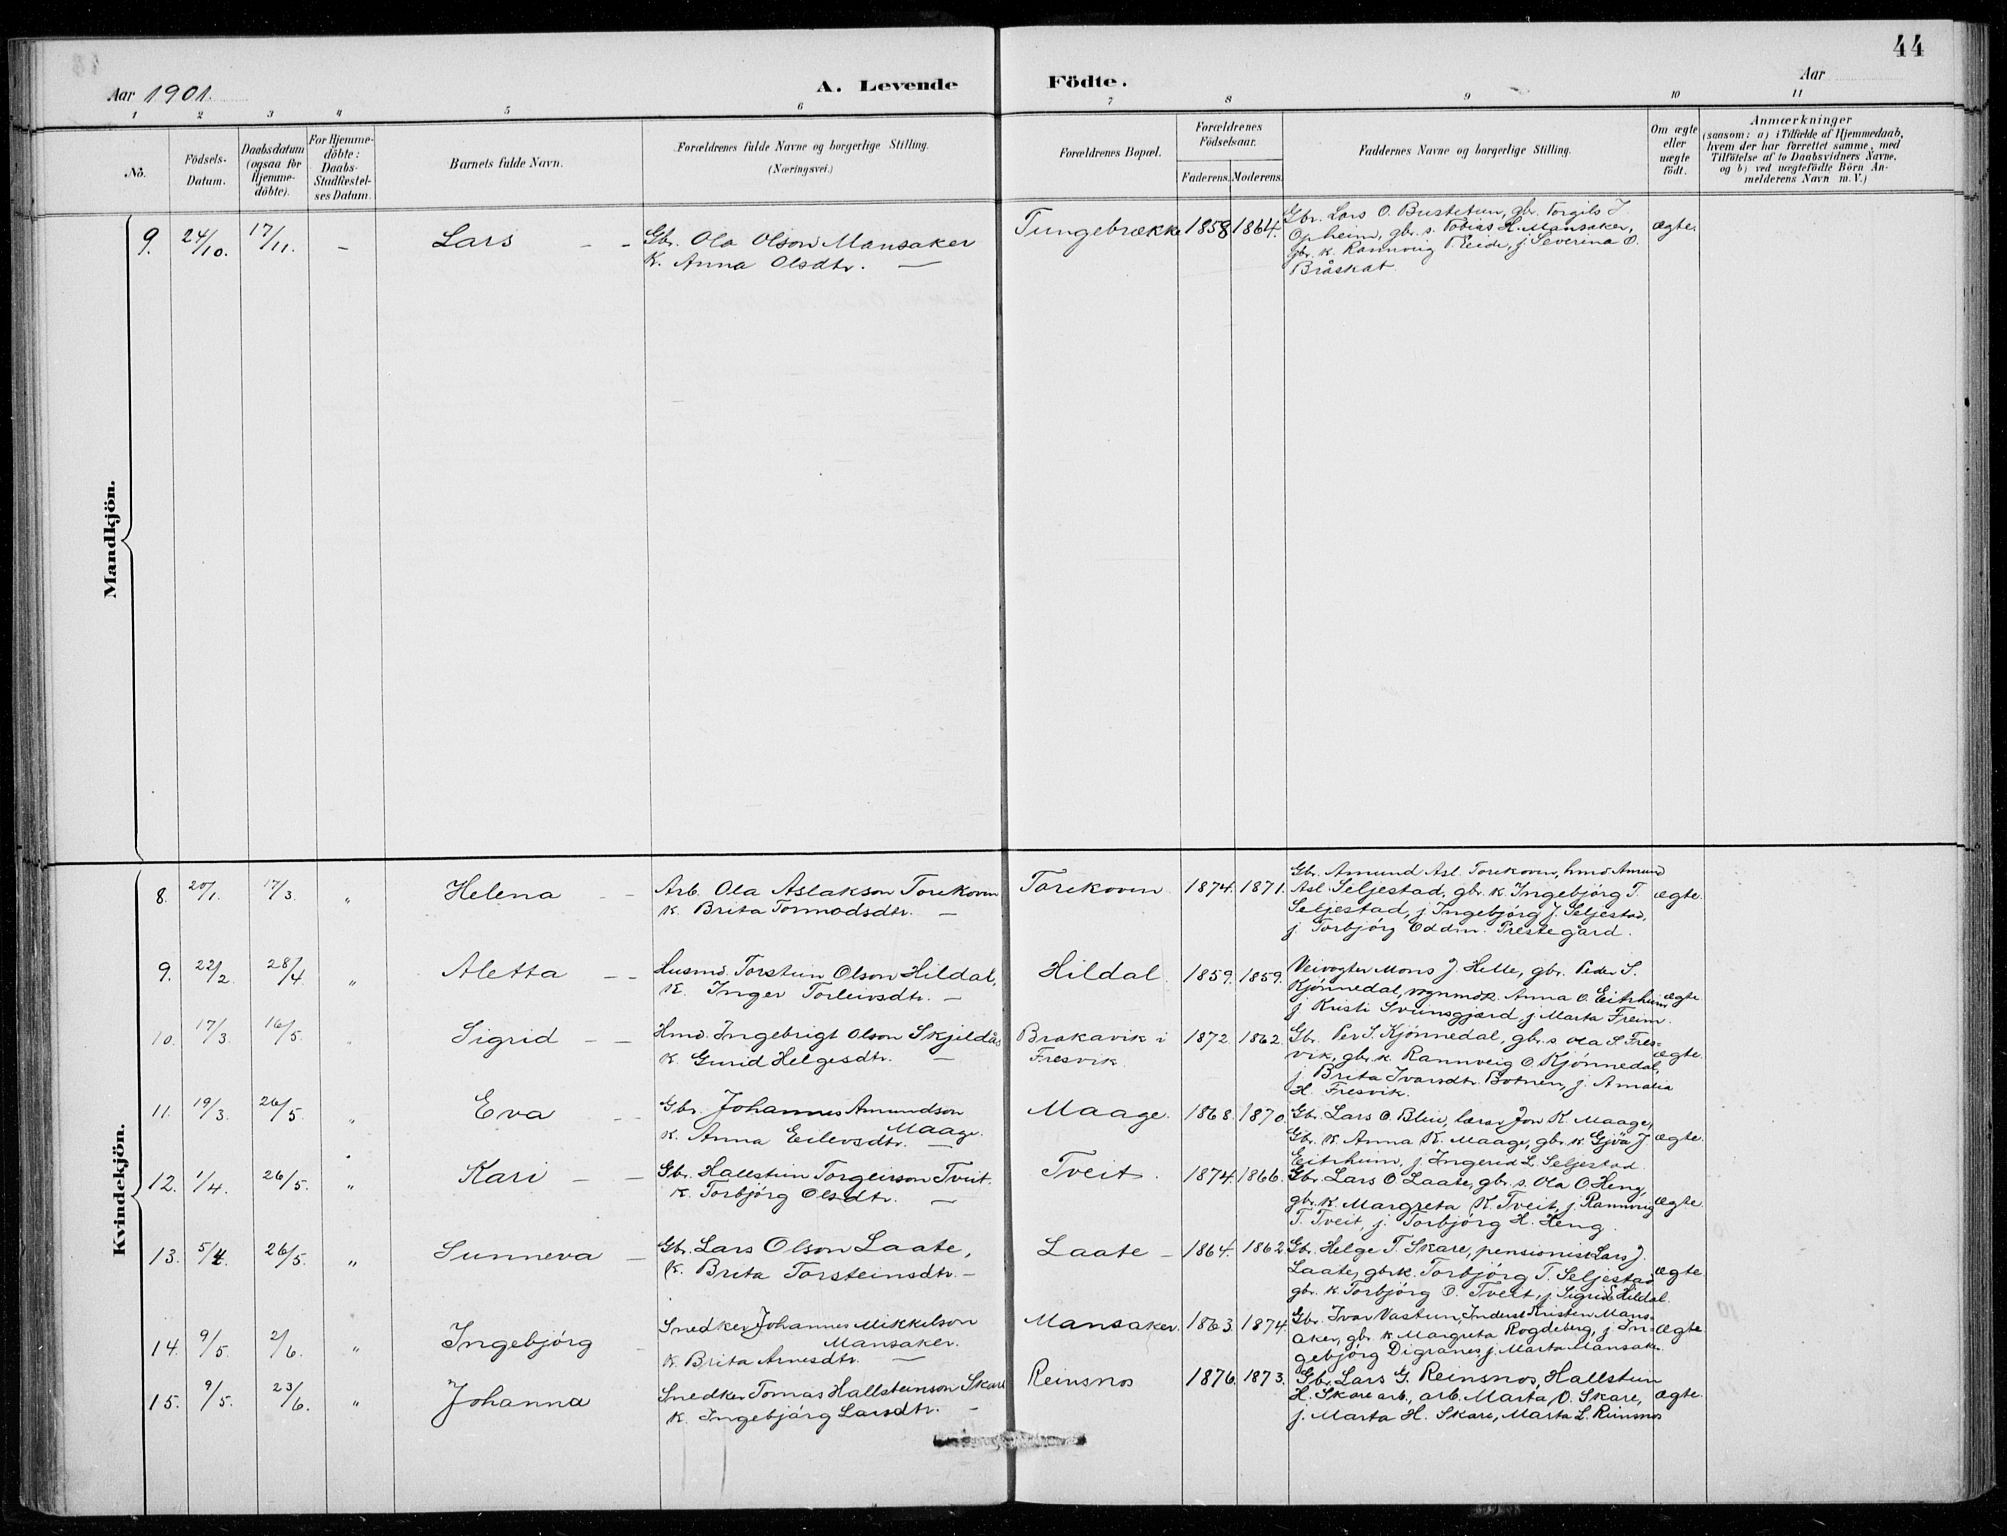 44
Aar 1901.
A. Levende Födte.
Aar
1 2 3 4 5 6 7 8 9 10 11
No.
Födsels-Datum.
Daabsdatum (ogsaa for Hjemme-döbte).
For Hjemme-döbte: Daabs-Stadfæstel-ses Datum.
Barnets fulde Navn.
Forældrenes fulde Navne og borgerlige Stilling. (Næringsvei.)
Forældrenes Bopæl.
Forældrenes Födselsaar.
Faderens. Moderens.
Faddernes Navne og borgerlige Stilling.
Om ægte eller uægte födt.
Anmærkninger
(saasom: a) i Tilfælde af Hjemmedaab,
hvem der har forrettet samme, med
Tilföielse af to Daabsvidners Navne,
og b) ved uægtefödte Börn An-
melderens Navn m. V.)
Mandkjön.
9. 24/10. 17/11. - Lars - -
Gbr. Ola Olson Mansaker
K. Anna Olsdtr. —
Tungebrække 1858 1864.
Gbr. Lars O. Bustetun, gbr. Torgils J.
Opheim, gbr. s. Tobias H. Mansaker,
gbr. k. Rannveig T. Eide, j. Severina O.
Bråskat.
ægte.
Kvindekjön.
8. 20/1. 17/3. " Helena -
Arb. Ola Aslakson Torekoven
K. Brita Tormodsdtr. —
Torekoven 1874. 1871.
Gbr. Amund Asl. Torekoven, hmd Amund
Asl. Seljestad, gbr. k. Ingebjörg T.
Seljestad, j. Ingebjörg J. Seljestad,
j. Torbjörg Oddm. Prestegård.
ægte.
9. 22/2. 28/4 " Aletta - -
Husmd. Torstein Olson Hildal,
K. Inger Torleivsdtr. —
Hildal 1859. 1859.
Veivogter Mons J. Helle, gbr. Peder S.
Kjönnedal, vognmdk. Anna O. Eitrheim,
j. Kristi Sveinsgjærd, j. Marta Freim.
ægte
10. 17/3. 16/5. " Sigrid - -
Hmd. Ingebrigt Olson Skjeldås
K. Gurid Helgesdtr. —
Brakavik i
Fresvik.
1872. 1862.
Gbr. Per S. Kjönnedal, gbr. s. Ola S. Fres-
vik, gbr. k. Rannveig O. Kjönnedal,
j. Brita Ivarsdtr. Botnen, j. Amalia
H. Fresvik.
ægte.
11. 19/3. 26/5. " Eva -
Gbr. Johannes Amundson
Maage.
K. Anna Eilevsdtr. —
Maage. 1868. 1870.
Gbr. Lars O. Bleie, lærer Jon K. Maage,
Gbr. K. Anna K. Maage, gbr. k. Gjöa J.
Eitrheim, j. Ingerid L. Seljestad
ægte.
12. 1/4. 26/5. " Kari - -
Gbr. Hallstein Torgeirson Tveit.
K. Torbjörg Olsdtr. —
Tveit. 1874. 1866.
Gbr. Lars O Laate, gbr. s. Ola O Heng,
gbr. k. Margreta K. Tveit, j. Rannveig
T. Tveit, j. Torbjörg H. Heng.
ægte
13. 5/4. 26/5. " Sunneva -
Gbr. Lars Olson Laate,
K. Brita Torsteinsdtr. —
Laate - 1864. 1862
Gbr. Helge T. Skare, pensionist Lars J.
Laate, gbrk. Torbjörg T. Seljestad
gbr. k. Torbjörg O. Tveit, j. Sigrid E Hildal.
ægte
14. 9/5. 2/6. " Ingebjörg -
Snedker Johannes Mikkelson
Mansaker.
K. Brita Arnesdtr. —
Mansaker. 1863. 1874.
Gbr. Ivar Vastun, Inderst Kristen Mans-
aker, gbr. k. Margreta Rogdeberg, j. In-
gebjörg Digranes, j. Marta Mansaker.
ægte
15. 9/5. 23/6. " Johanna
Snedker Tomas Hallsteinson Skare
K. Ingebjörg Larsdtr. -
Reinsnos 1876. 1873.
Gbr. Lars G. Reinsnos, Hallstein
H. Skare arb., arb. Marta O. Skare,
j. Marta H. Skare, Marta L. Reinsnos
ægte